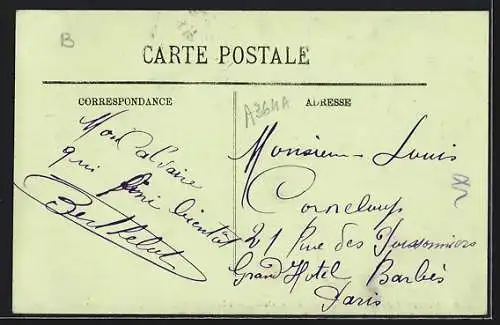 B
CARTE POSTALE
CORRESPONDANCE
ADRESSE
A364A
Mon Calvaire
qui fini bientôt
Berthelot
Monsieur Louis
Corneloup
21 Rue des Poissonniers
Grand Hotel Barbès
Paris